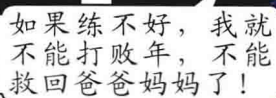 如果练不好，我就
不能打败年，不能
救回爸爸妈妈了！